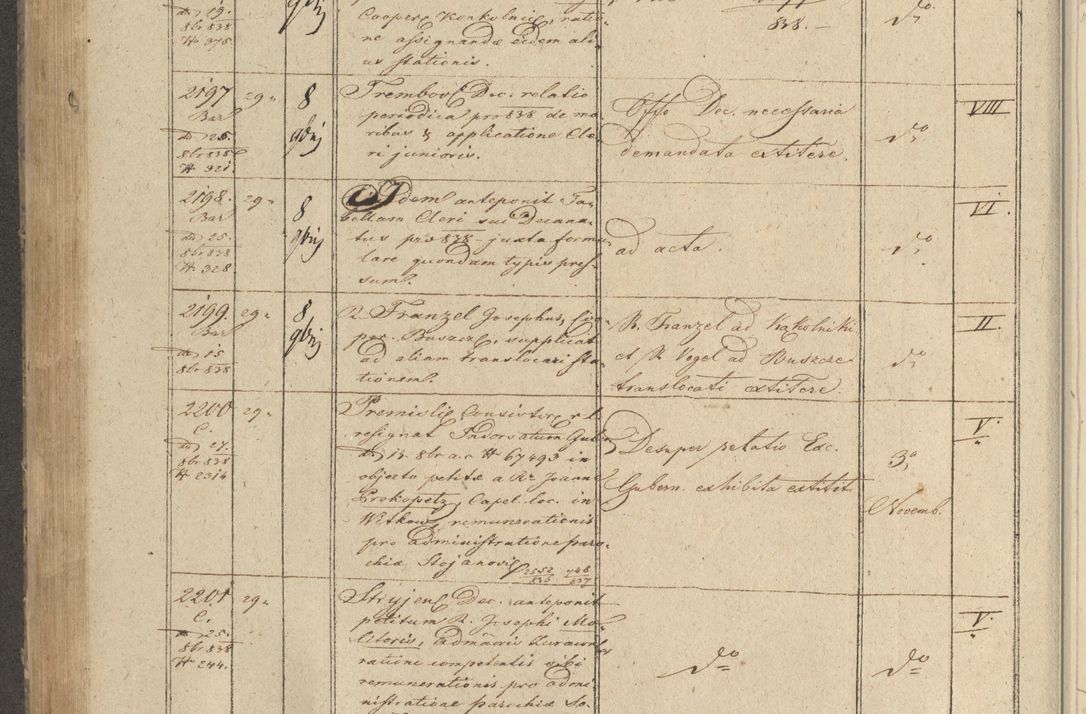 dto 19.
8br 838
№ 375
gbrij
Cooper Konkolnic, ratio-
ne assignandæ eidem ali-
us stationis.
838. —
do
2197
Bar
dto 25.
8br 838
№ 321.
29
8
gbrij
Trembovl Dec. relatio
periodica pro 838 de mo-
ribus & applicatione Cle-
ri junioris.
Offo Dec. necessaria
demandata extitere.
do
VIII
2198.
Bar
dto 25.
8br 838
№ 328
29
8
gbrij
Idem anteponit Ta-
bellam Cleri sui Decana-
tus pro 838 juxta formu-
lare quondam typis pres-
sum.
ad acta.
do
VI.
2199.
Bar
dto 15
8br 838
29
8
gbrij
R. Franzel Josephus, Coo-
per. Buszcz, supplicat
ad aliam translocari sta-
tionem.
R. Franzel ad Kąkolniki
et R Vogel ad Buszcze
translocati extitere.
do
II.
2200
C.
dto 27.
8br 838
№ 2314
29
Premislie Consistor r l
resignat Indorsatum Gubern
dto 15 8br a. c № 67493 in
objecto petitæ a Rdo Joanne
Prokopetz, Capel. loc. in
Witkow remunerationis
pro administratione paro-
chiæ Stojanovie
2552/836 748/837
Desuper relatio Exc.
Gubern. exhibita extitit
3a
Novemb.
V.
2201
C.
dto 25.
8br 838
№ 244.
29
Stryjen Dec. anteponit
petitum R. Josephi Mo-
literis, admnoris
ratione competentis sibi
remunerationis pro admi-
nistratione parochiæ So-
do
do
V.